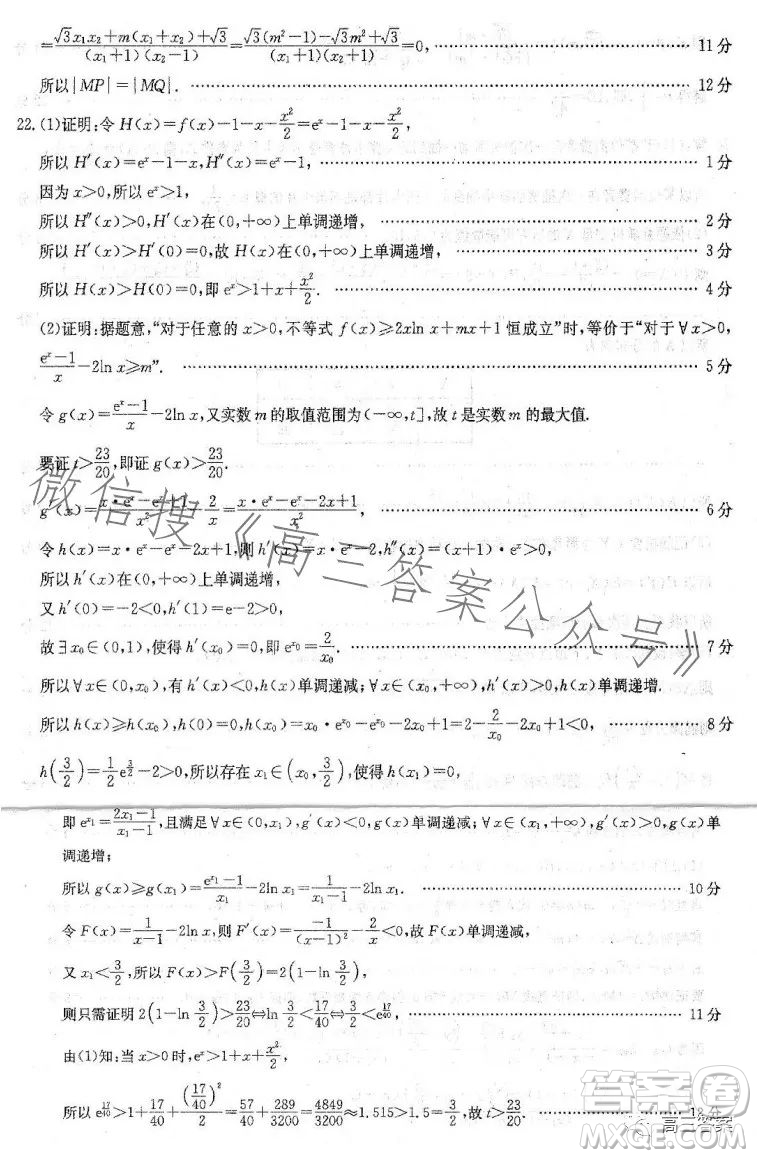 =\frac{\sqrt{3}x₁x₂+m(x₁+x₂)+\sqrt{3}}{(x₁+1)(x₂-1)}=\frac{\sqrt{3}(m²-1)-\sqrt{3}m²+\sqrt{3}}{(x₁+1)(x₂+1)}=0, …… 11分
所以|MP|=|MQ|. …… 12分
22.(1)证明:令H(x)=f(x)-1-x-\frac{x²}{2}=eˣ-1-x-\frac{x²}{2},
所以H′(x)=eˣ-1-x,H″(x)=eˣ-1, …… 1分
因为x>0,所以eˣ>1,
所以H″(x)>0,H′(x)在(0,+∞)上单调递增, …… 2分
所以H′(x)>H′(0)=0,故H(x)在(0,+∞)上单调递增, …… 3分
所以H(x)>H(0)=0,即eˣ>1+x+\frac{x²}{2}. …… 4分
(2)证明:据题意,“对于任意的x>0,不等式f(x)≥2xln x+mx+1恒成立”时,等价于“对于∀x>0,
\frac{eˣ-1}{x}-2ln x≥m”. …… 5分
令g(x)=\frac{eˣ-1}{x}-2ln x,又实数m的取值范围为(-∞,t],故t是实数m的最大值.
要证t>\frac{23}{20},即证g(x)>\frac{23}{20}.
g′(x)=\frac{x·eˣ-eˣ+1}{x²}-\frac{2}{x}=\frac{x·eˣ-eˣ-2x+1}{x²}, …… 6分
令h(x)=x·eˣ-eˣ-2x+1,则h′(x)=x·eˣ-2,h″(x)=(x+1)·eˣ>0,
所以h′(x)在(0,+∞)上单调递增,
又h′(0)=-2<0,h′(1)=e-2>0,
故∃x₀∈(0,1),使得h′(x₀)=0,即e^{x₀}=\frac{2}{x₀}. …… 7分
所以∀x∈(0,x₀),有h′(x)<0,h(x)单调递减;∀x∈(x₀,+∞),h′(x)>0,h(x)单调递增.
所以h(x)≥h(x₀),h(0)=0,h(x₀)=x₀·e^{x₀}-e^{x₀}-2x₀+1=2-\frac{2}{x₀}-2x₀+1<0, …… 8分
h(\frac{3}{2})=\frac{1}{2}e^{\frac{3}{2}}-2>0,所以存在x₁∈(x₀,\frac{3}{2}),使得h(x₁)=0,
即e^{x₁}=\frac{2x₁-1}{x₁-1},且满足∀x∈(0,x₁),g′(x)<0,g(x)单调递减;∀x∈(x₁,+∞),g′(x)>0,g(x)单
调递增;
所以g(x)≥g(x₁)=\frac{e^{x₁}-1}{x₁}-2ln x₁=\frac{1}{x₁-1}-2ln x₁. …… 10分
令F(x)=\frac{1}{x-1}-2ln x,则F′(x)=\frac{-1}{(x-1)²}-\frac{2}{x}<0,故F(x)单调递减,
又x₁<\frac{3}{2},所以F(x)>F(\frac{3}{2})=2(1-ln\frac{3}{2}),
则只需证明2(1-ln\frac{3}{2})>\frac{23}{20}⇔ln\frac{3}{2}<\frac{17}{40}⇔\frac{3}{2}<e^{\frac{17}{40}}, …… 11分
由(1)知:当x>0时,eˣ>1+x+\frac{x²}{2},
所以e^{\frac{17}{40}}>1+\frac{17}{40}+\frac{(\frac{17}{40})²}{2}=\frac{57}{40}+\frac{289}{3200}=\frac{4849}{3200}≈1.515>1.5=\frac{3}{2},故t>\frac{23}{20}. …… 12分
微信搜《高三答案公众号》
答案卷
高三答案
MXQE.COM